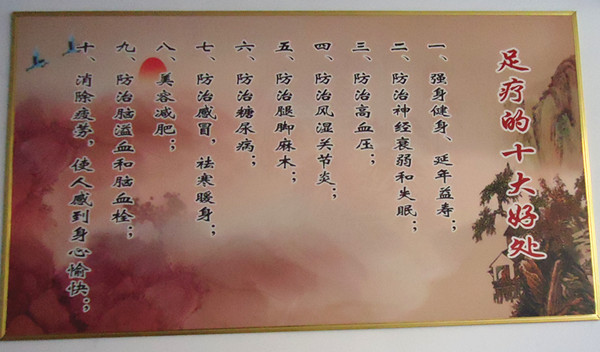 足疗的十大好处
一、强身健身、延年益寿；
二、防治神经衰弱和失眠；
三、防治高血压；
四、防治风湿关节炎；
五、防治腿脚麻木；
六、防治糖尿病；
七、防治感冒，祛寒暖身；
八、美容减肥；
九、防治脑溢血和脑血栓；
十、消除疲劳，使人感到身心愉快；